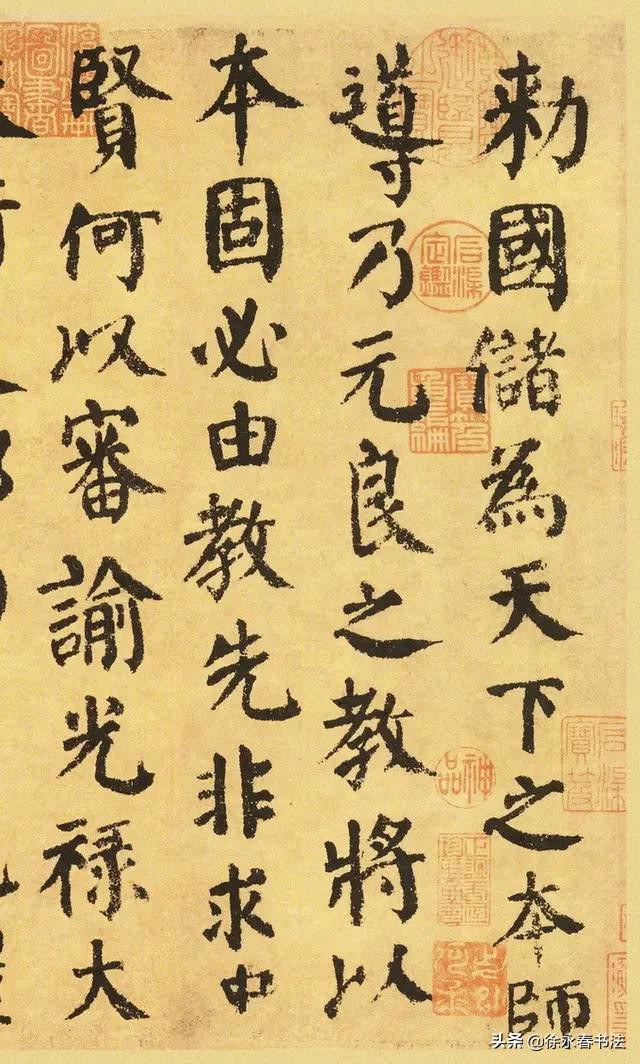 勅國儲為天下之本師
導乃元良之教將以
本固必由教先非求中
賢何以審諭光祿大
神品
头条 @徐永春书法